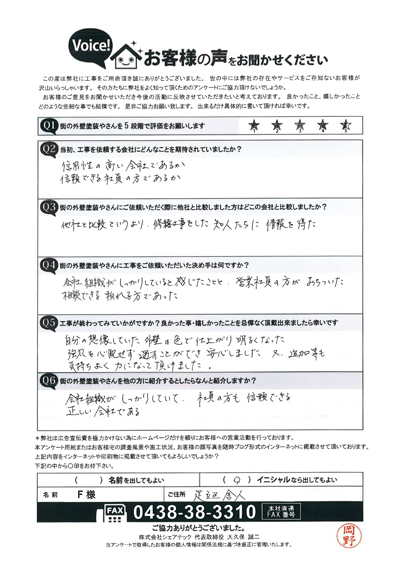 Voice!
お客様の声をお聞かせください
この度は弊社に工事をご用命頂き誠にありがとうございました。世の中には弊社の存在やサービスをご存知ないお客様が
沢山いらっしゃいます。その方たちに弊社をよく知って頂くためのアンケートにご協力頂けないでしょうか。
お客様のご意見をお聞かせいただき今後の活動に反映させていただきたいと考えております。良かったこと、嬉しかったこと
どのような些細な事でも結構です。是非ご協力お願い致します。出来るだけ具体的に書いて頂ければ幸いです。
Q1 街の外壁塗装やさんを5段階で評価をお願いします
Q2 当初、工事を依頼する会社にどんなことを期待されていましたか?
信用性の高い会社であるか
信頼できる社員の方であるか
Q3 街の外壁塗装やさんにご依頼いただく際に他社と比較しました方はどこの会社と比較しましたか?
他社と比較というより、修繕工事をした知人たちに情報を得た
Q4 街の外壁塗装やさんに工事をご依頼いただいた決め手は何ですか?
会社組織がしっかりしていると感じたことと、営業社員の方がおちついた
相談できる頼れる方であった
Q5 工事が終わってみていかがですか?良かった事・嬉しかったことを忌憚なく頂戴出来ましたら幸いです
自分の想像していた外壁の色で仕上がり明るくなった
強風を心配せず過すことができ安心しました 又、追加等も
気持ちよく力になって頂けました。
Q6 街の外壁塗装やさんを他の方に紹介するとしたらなんと紹介しますか?
会社組織がしっかりしていて、社員の方も信頼できる
正しい会社である
*弊社は広告宣伝費を極力かけない為にホームページだけを頼りにお客様への営業活動を行っております。
本アンケート用紙またはお客様宅の調査風景や施工状況、お客様の顔写真を随時ブログ形式のインターネットに掲載させて頂いております。
上記内容をインターネットや印刷物に掲載させて頂いてもよろしいでしょうか?
下記の中から〇印をお付下さい。
( )名前を出してもよい (〇)イニシャルなら出してもよい
名前 F 様 ご住所 足立区 舎人
FAX 0438-38-3310 本社直通 FAX番号
ご協力ありがとうございました。
株式会社シェアテック 代表取締役 大久保 誠二
当アンケートで取得したお客様の個人情報は関係法規に基づき厳正に管理いたします。
岡野